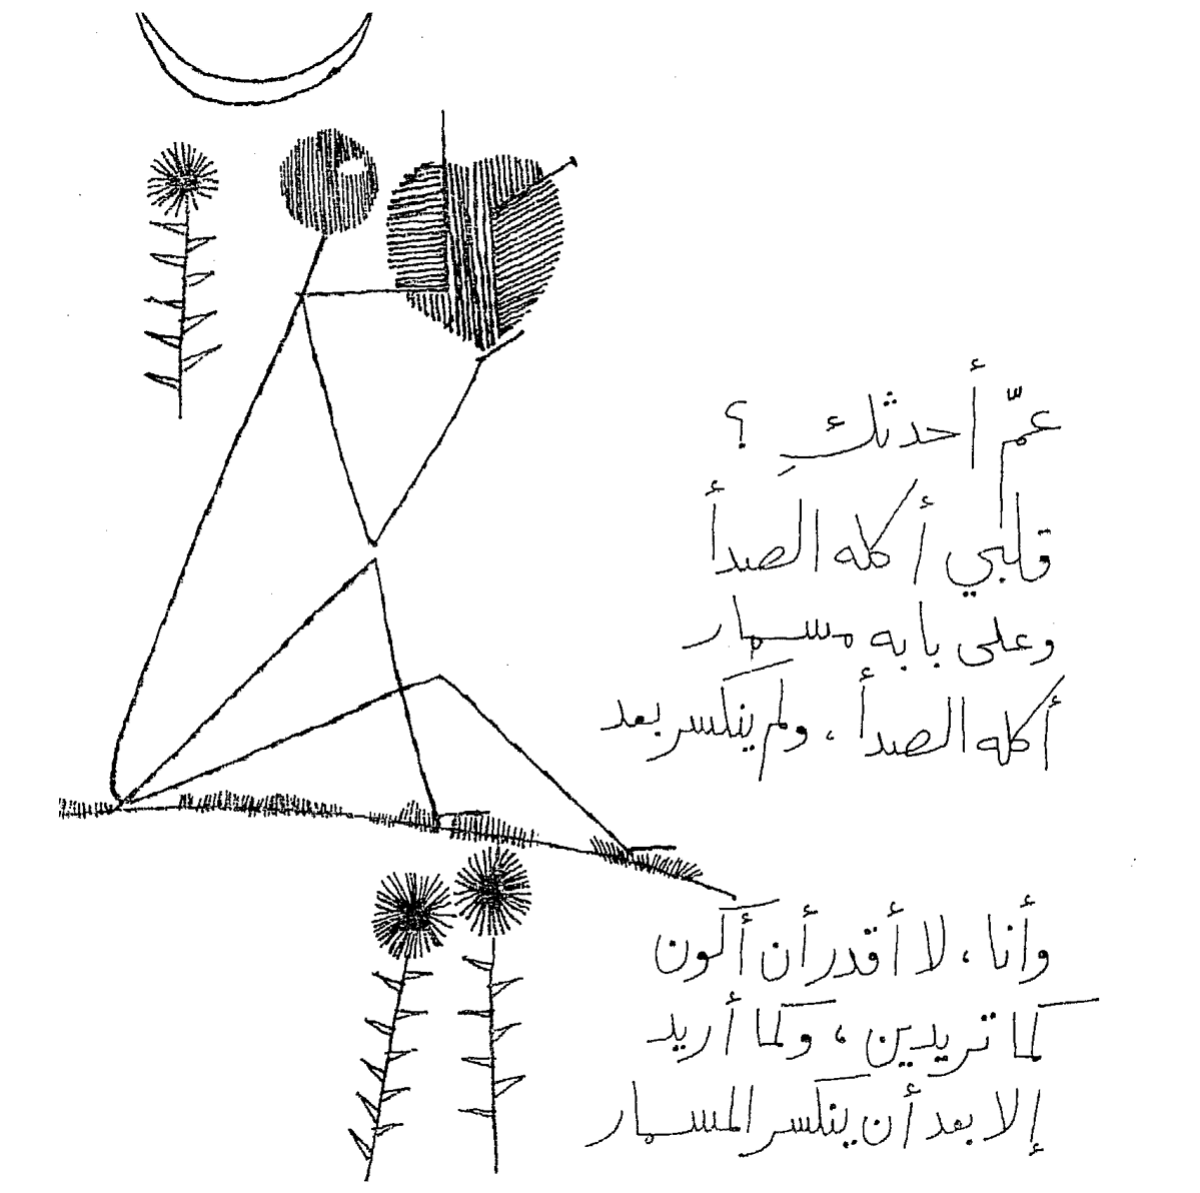 عمّ أحدثكِ ؟
قلبي أكله الصدأ
وعلى بابه مسمار
أكله الصدأ ، ولم ينكسر بعد
وأنا ، لا أقدر أن أكون
كما تريدين ، وكما أريد
إلا بعد أن ينكسر المسمار